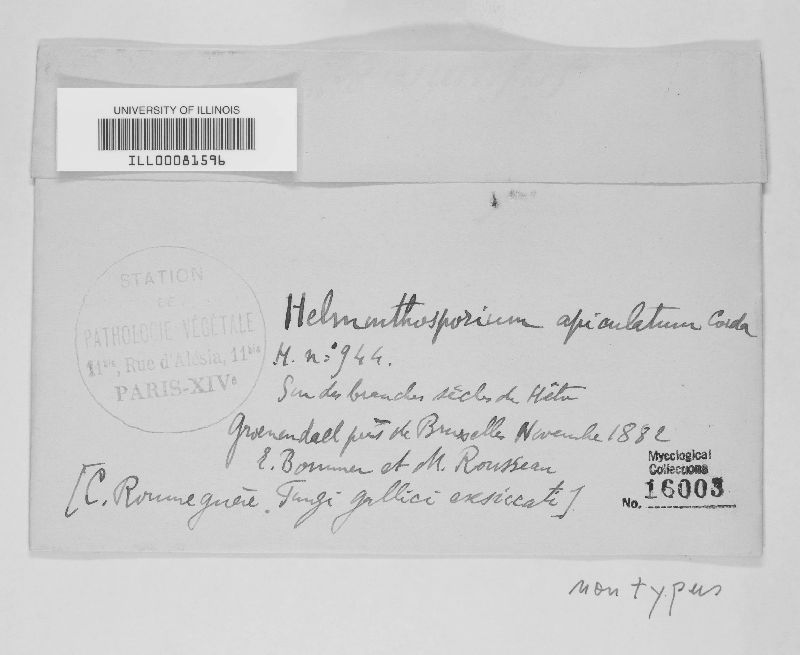 UNIVERSITY OF ILLINOIS
ILL00081596
STATION
DE
PATHOLOGIE VÉGÉTALE
11bis, Rue d'Alésia, 11bis
PARIS-XIVe
Helminthosporium apiculatum Corda
H. n:º 944.
Sur des branches sèches de Hêtre
Groenendael près de Bruxelles Novembre 1882
E. Bommer et M. Rousseau
[C. Roumeguère. Fungi gallici exsiccati]
Mycological
Collections
No. 16003
non typus